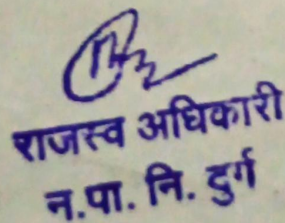 राजस्व अधिकारी
न.पा. नि. दुर्ग